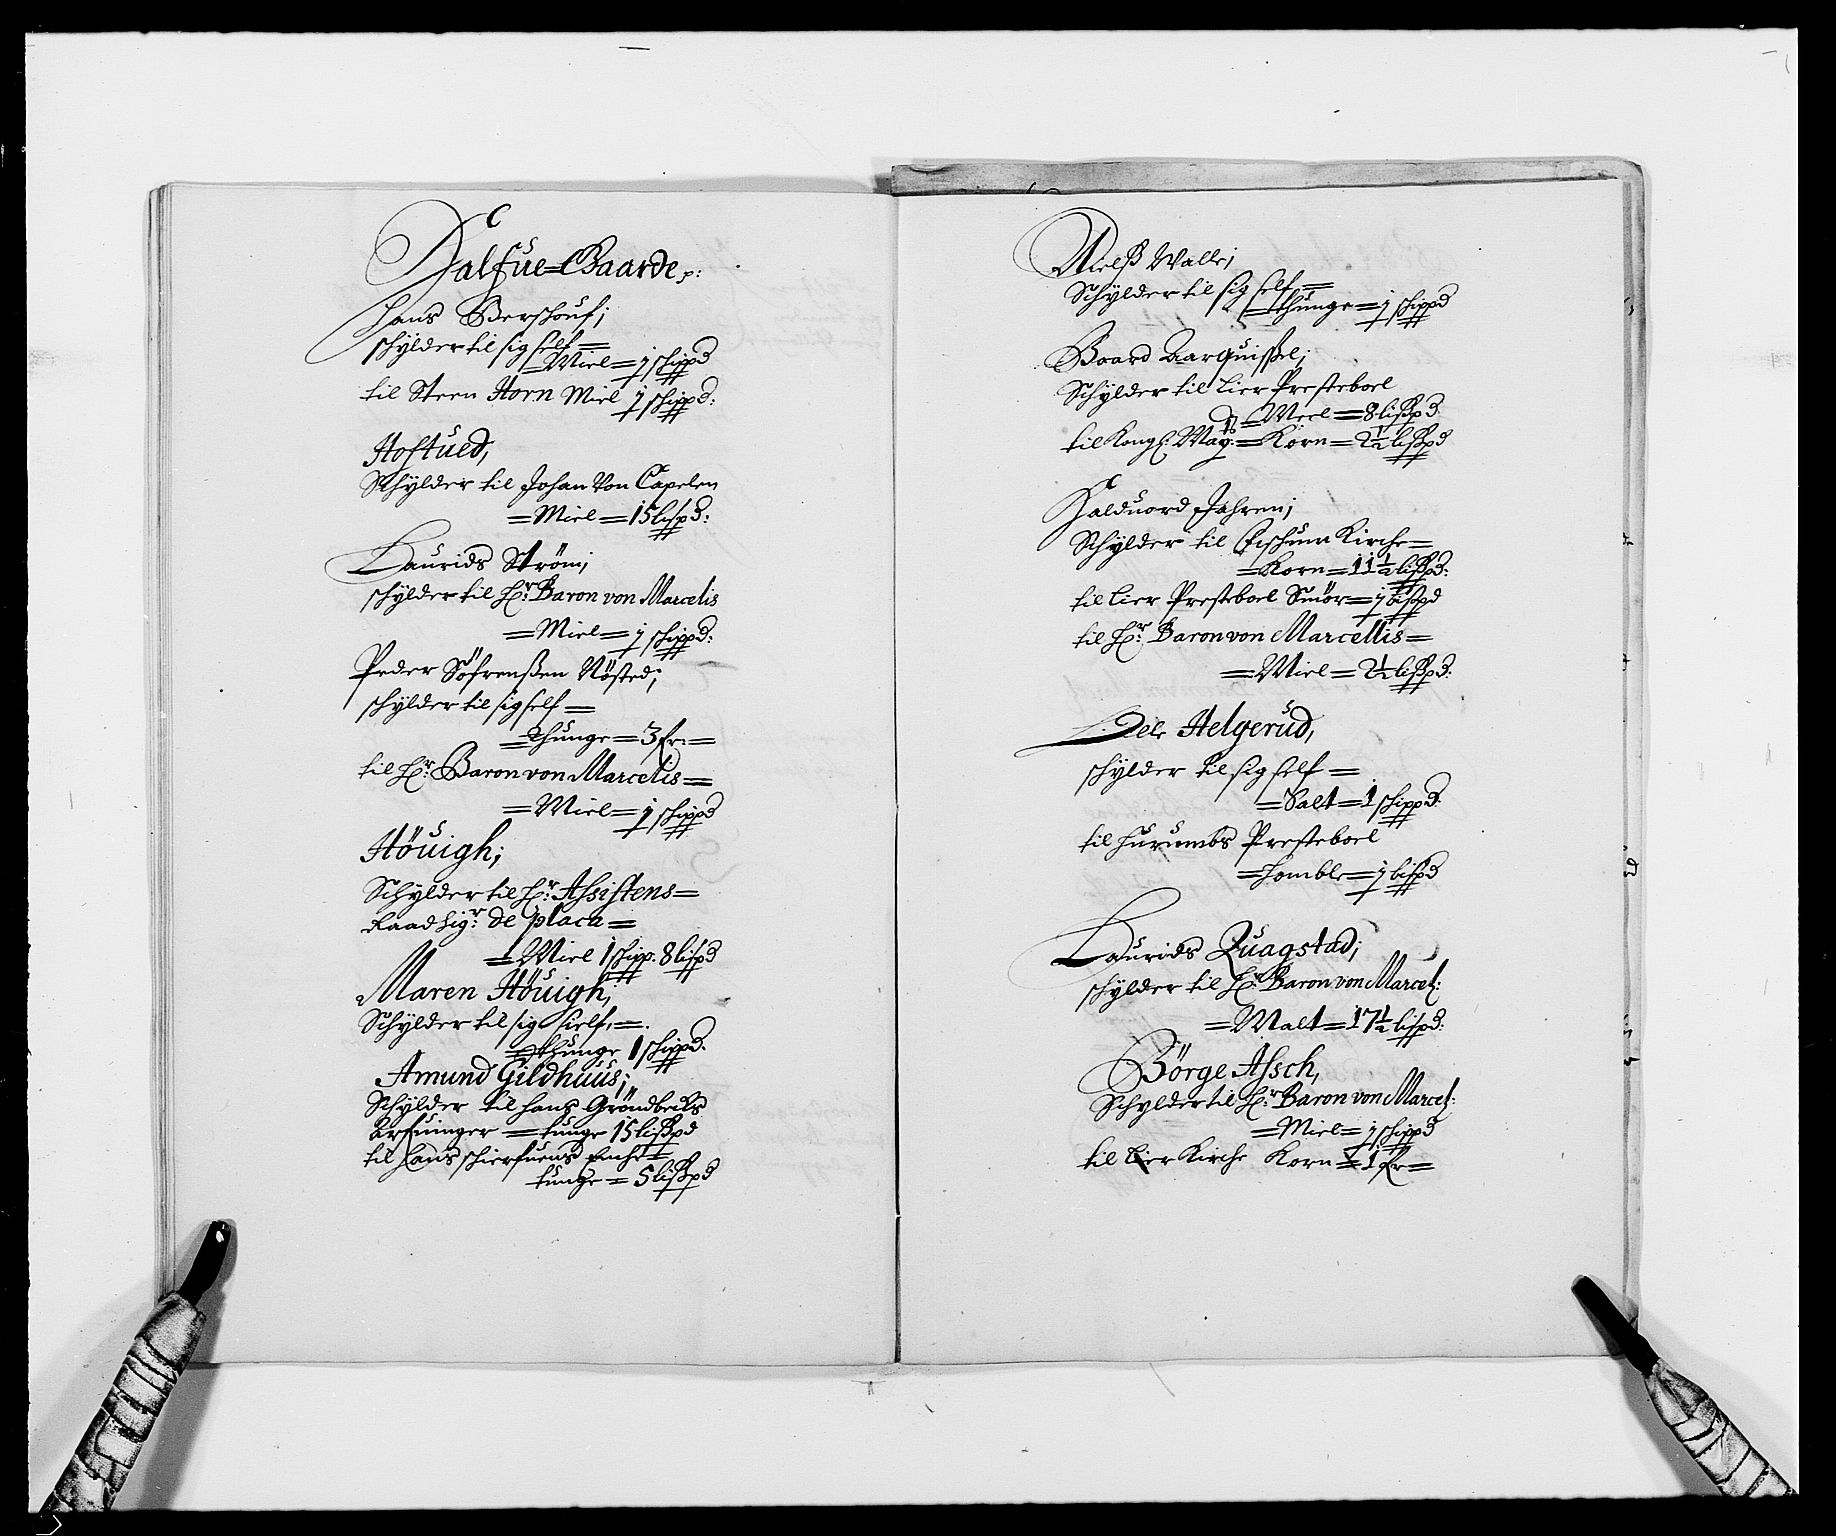 Halfue Gaarde,:
Hans Berschouf;
schÿlder til sig self=
=Miel=j schippd
til Steen Horn Miel j schippd:
Hoftued,
Schÿlder til Johan Von Capelen
=Miel=15 lispd:
Laurids Ström;
schÿlder til Hr: Baron von Marcelis
=Miel=j schippd:
Peder Söfrenßen Nösted;
schÿlder til sig self=
=Thunge=3 fr:=
til Hr: Baron von Marcelis=
=Miel=j schippd
Höuigh;
Schÿlder til Hr: Assistens=
Raad Sigr: de placa=
=Miel 1 schipp: 8 lispd
Maren Höuigh;
Schÿlder til sig sielf,=.
=thunge 1 schippd.
Amund Gildhuus;
Schÿlder til Hans Gröndbecks
Arfuinger=tunge 15 lißpd
til Hans schierfuens Enche=
tunge=5 lißpd
Nielß Walle;
Schÿlder til sig self=
=thunge=j schippd
Board Aarquißel;
Schÿlder til Lier Presteboel
=Meel=8 lißpd
til Kongl: Maÿ:ts=Korn=2½ lißpd
Halduord Jahren;
Schÿlder til Fischum Kirche=
=Korn=11½ lißpd:
til Lier Presteboel Smör=j lißpd
til Hr: Baron von Marcellis=
=Miel=2½ lißpd:
Helgerud,
schÿlder til sig self=
=Salt=1 schippd:
til Hurumbs Presteboel
=Homble=j lißpd
Laurids Quagstad;
schÿlder til Hr: Baron von Marcel:
=Malt=17½ lispd:
Börge Assch,
Schylder til Hr: Baron von Marcel:
=Miel=j schippd
til Lier Kirche Korn=1 fr=